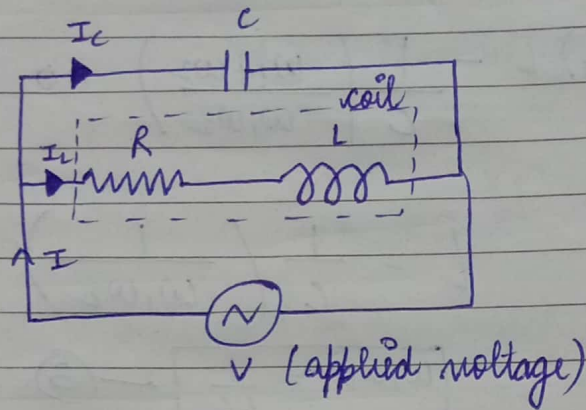 C
I_C
coil
R
L
I_L
I
V (applied voltage)